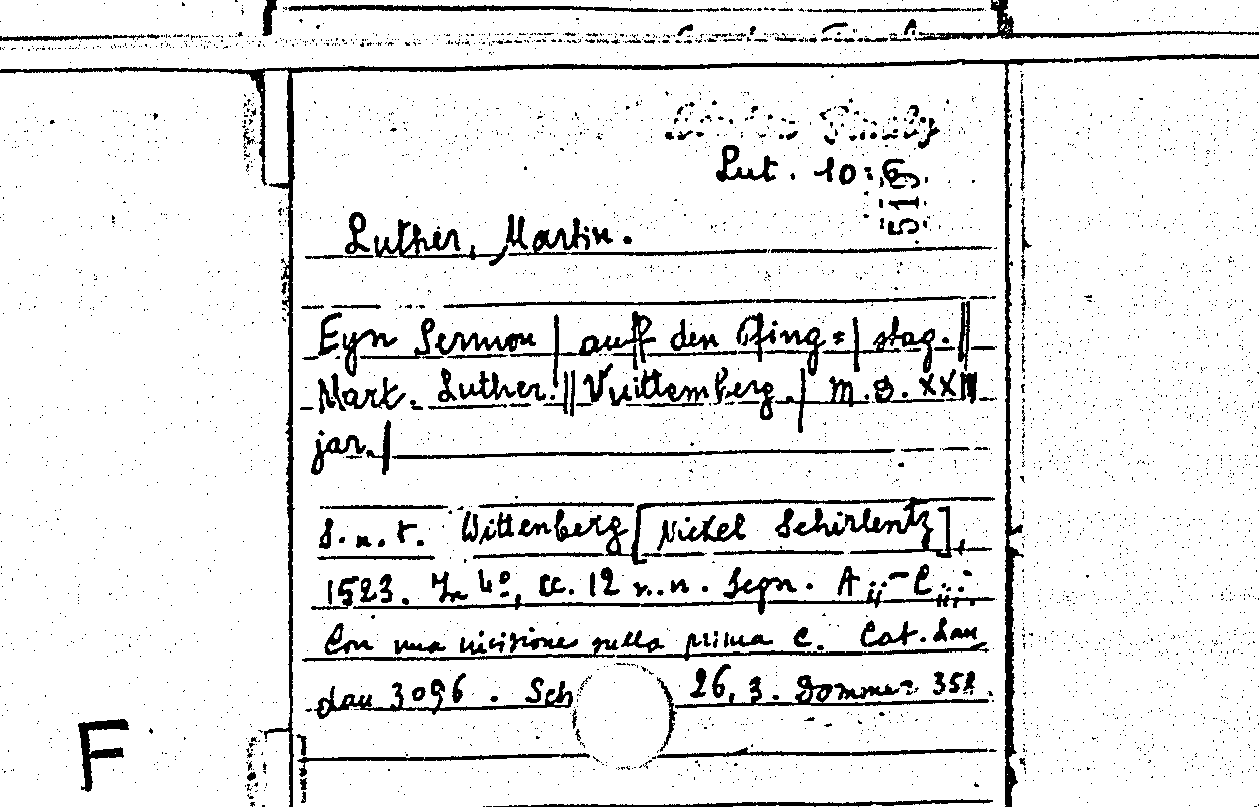 Lut. 10:6
519
Luther, Martin.
Eyn Sermon | auff den Pfing= | stag. ||
Mart. Luther. || Vuittemberg. | M.D.XXIII
jar. |
S.n.t. Wittenberg [Nickel Schirlentz],
1523. In 4º, cc. 12 n.n. Segn. Aii-Ciii.
Con una incisione nella prima c. Cat. Lau
dau 3096. Sch 26, 3. Dommer 358.
F